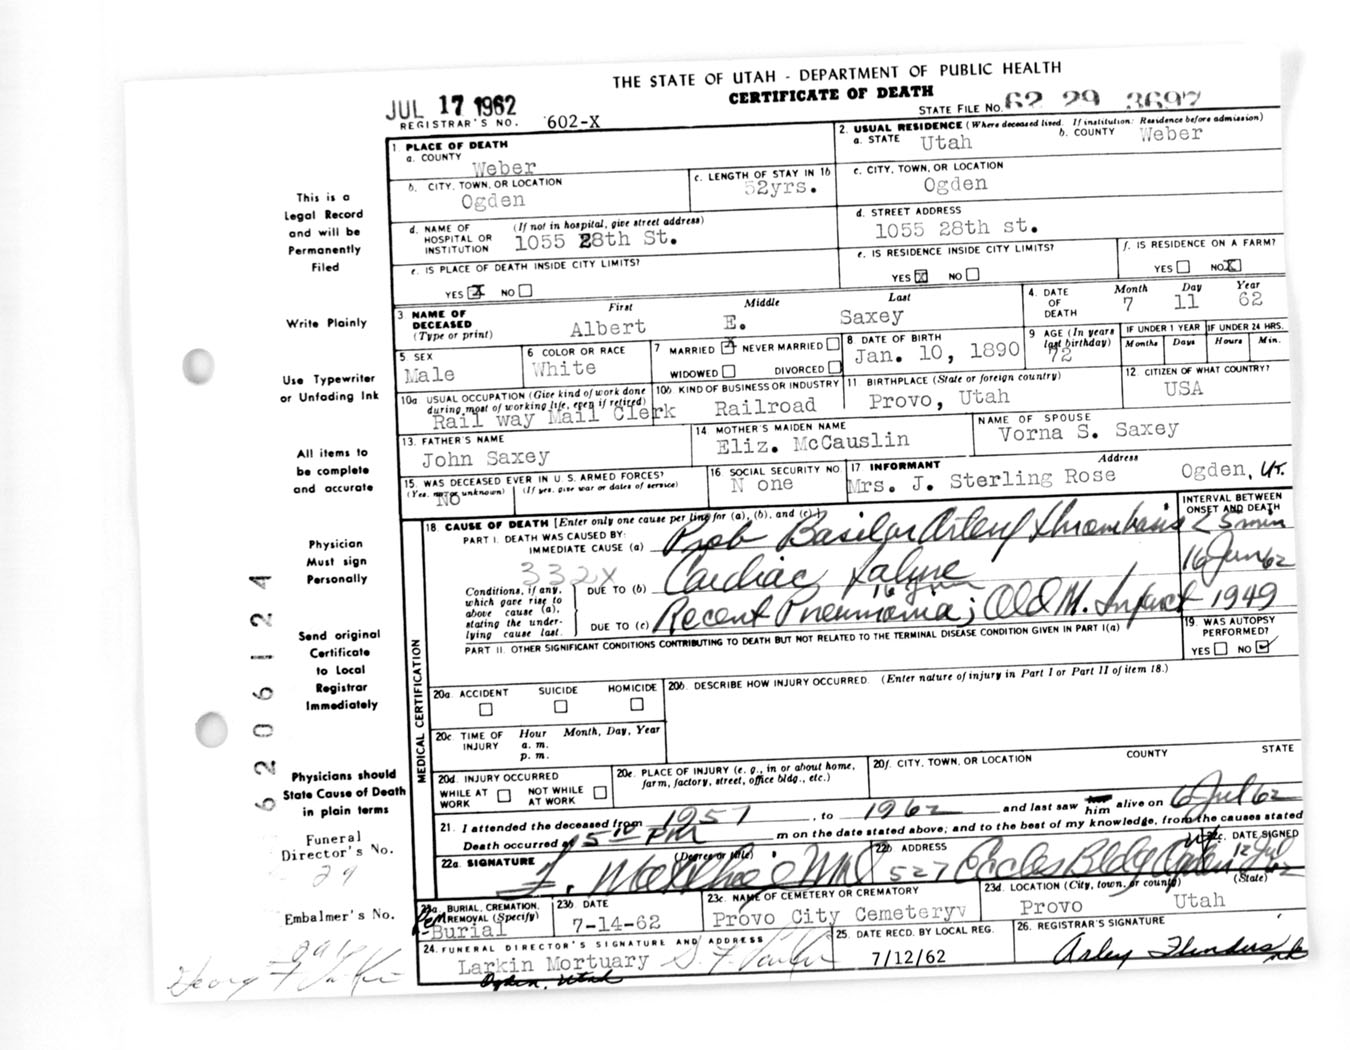 THE STATE OF UTAH - DEPARTMENT OF PUBLIC HEALTH
CERTIFICATE OF DEATH
JUL 17 1962
STATE FILE NO. 62 29 3697
REGISTRAR'S NO. 602-X
1. PLACE OF DEATH
a. COUNTY
Weber
2. USUAL RESIDENCE (Where deceased lived. If institution: Residence before admission)
a. STATE Utah b. COUNTY Weber
b. CITY, TOWN, OR LOCATION
Ogden
c. LENGTH OF STAY IN 1b
52yrs.
c. CITY, TOWN, OR LOCATION
Ogden
d. NAME OF HOSPITAL OR INSTITUTION (If not in hospital, give street address)
1055 28th St.
d. STREET ADDRESS
1055 28th st.
e. IS PLACE OF DEATH INSIDE CITY LIMITS?
YES X NO
e. IS RESIDENCE INSIDE CITY LIMITS?
YES X NO
f. IS RESIDENCE ON A FARM?
YES NO X
3 NAME OF DECEASED (Type or print)
First Middle Last
Albert E. Saxey
4. DATE OF DEATH
Month Day Year
7 11 62
5. SEX
Male
6 COLOR OR RACE
White
7 MARRIED X NEVER MARRIED
WIDOWED DIVORCED
8 DATE OF BIRTH
Jan. 10, 1890
9 AGE (In years last birthday)
72
IF UNDER 1 YEAR IF UNDER 24 HRS.
Months Days Hours Min.
10a USUAL OCCUPATION (Give kind of work done during most of working life, even if retired)
Rail way Mail Clerk
10b KIND OF BUSINESS OR INDUSTRY
Railroad
11 BIRTHPLACE (State or foreign country)
Provo, Utah
12 CITIZEN OF WHAT COUNTRY?
USA
13. FATHER'S NAME
John Saxey
14 MOTHER'S MAIDEN NAME
Eliz. McCauslin
NAME OF SPOUSE
Vorna S. Saxey
15. WAS DECEASED EVER IN U. S. ARMED FORCES?
(Yes, no, or unknown) (If yes, give war or dates of service)
No
16 SOCIAL SECURITY NO.
N one
17 INFORMANT Address
Mrs. J. Sterling Rose Ogden, Ut.
18 CAUSE OF DEATH [Enter only one cause per line for (a), (b), and (c).]
INTERVAL BETWEEN ONSET AND DEATH
PART I. DEATH WAS CAUSED BY:
IMMEDIATE CAUSE (a) Prob Basilar Artery thrombosis < 5 min
332X
Conditions, if any, which gave rise to above cause (a), stating the underlying cause last.
DUE TO (b) Cardiac 16 Jun 62
DUE TO (c) Recent Pneumonia; Old M. Infarct 1949
PART II. OTHER SIGNIFICANT CONDITIONS CONTRIBUTING TO DEATH BUT NOT RELATED TO THE TERMINAL DISEASE CONDITION GIVEN IN PART I(a)
19. WAS AUTOPSY PERFORMED?
YES NO ✓
MEDICAL CERTIFICATION
20a. ACCIDENT SUICIDE HOMICIDE
20b. DESCRIBE HOW INJURY OCCURRED. (Enter nature of injury in Part I or Part II of item 18.)
20c. TIME OF INJURY Hour Month, Day, Year
a. m.
p. m.
20d. INJURY OCCURRED
WHILE AT WORK NOT WHILE AT WORK
20e. PLACE OF INJURY (e. g., in or about home, farm, factory, street, office bldg., etc.)
20f. CITY, TOWN, OR LOCATION COUNTY STATE
21. I attended the deceased from 1957, to 1962 and last saw him alive on 6 Jul 62
Death occurred at 5 10 PM m on the date stated above; and to the best of my knowledge, from the causes stated
22a. SIGNATURE (Degree or title)
22b ADDRESS
527 Eccles Bldg Ogden
22c. DATE SIGNED
12 Jul 62
23a. BURIAL, CREMATION, REMOVAL (Specify)
Rem
-Burial
23b. DATE
7-14-62
23c. NAME OF CEMETERY OR CREMATORY
Provo City Cemeteryv
23d. LOCATION (City, town, or county) (State)
Provo Utah
24. FUNERAL DIRECTOR'S SIGNATURE AND ADDRESS
Larkin Mortuary
Ogden, Utah
25. DATE RECD. BY LOCAL REG.
7/12/62
26. REGISTRAR'S SIGNATURE
This is a
Legal Record
and will be
Permanently
Filed
Write Plainly
Use Typewriter
or Unfading Ink
All items to
be complete
and accurate
Physician
Must sign
Personally
Send original
Certificate
to Local
Registrar
Immediately
Physicians should
State Cause of Death
in plain terms
Funeral
Director's No.
29
Embalmer's No.
62 206124